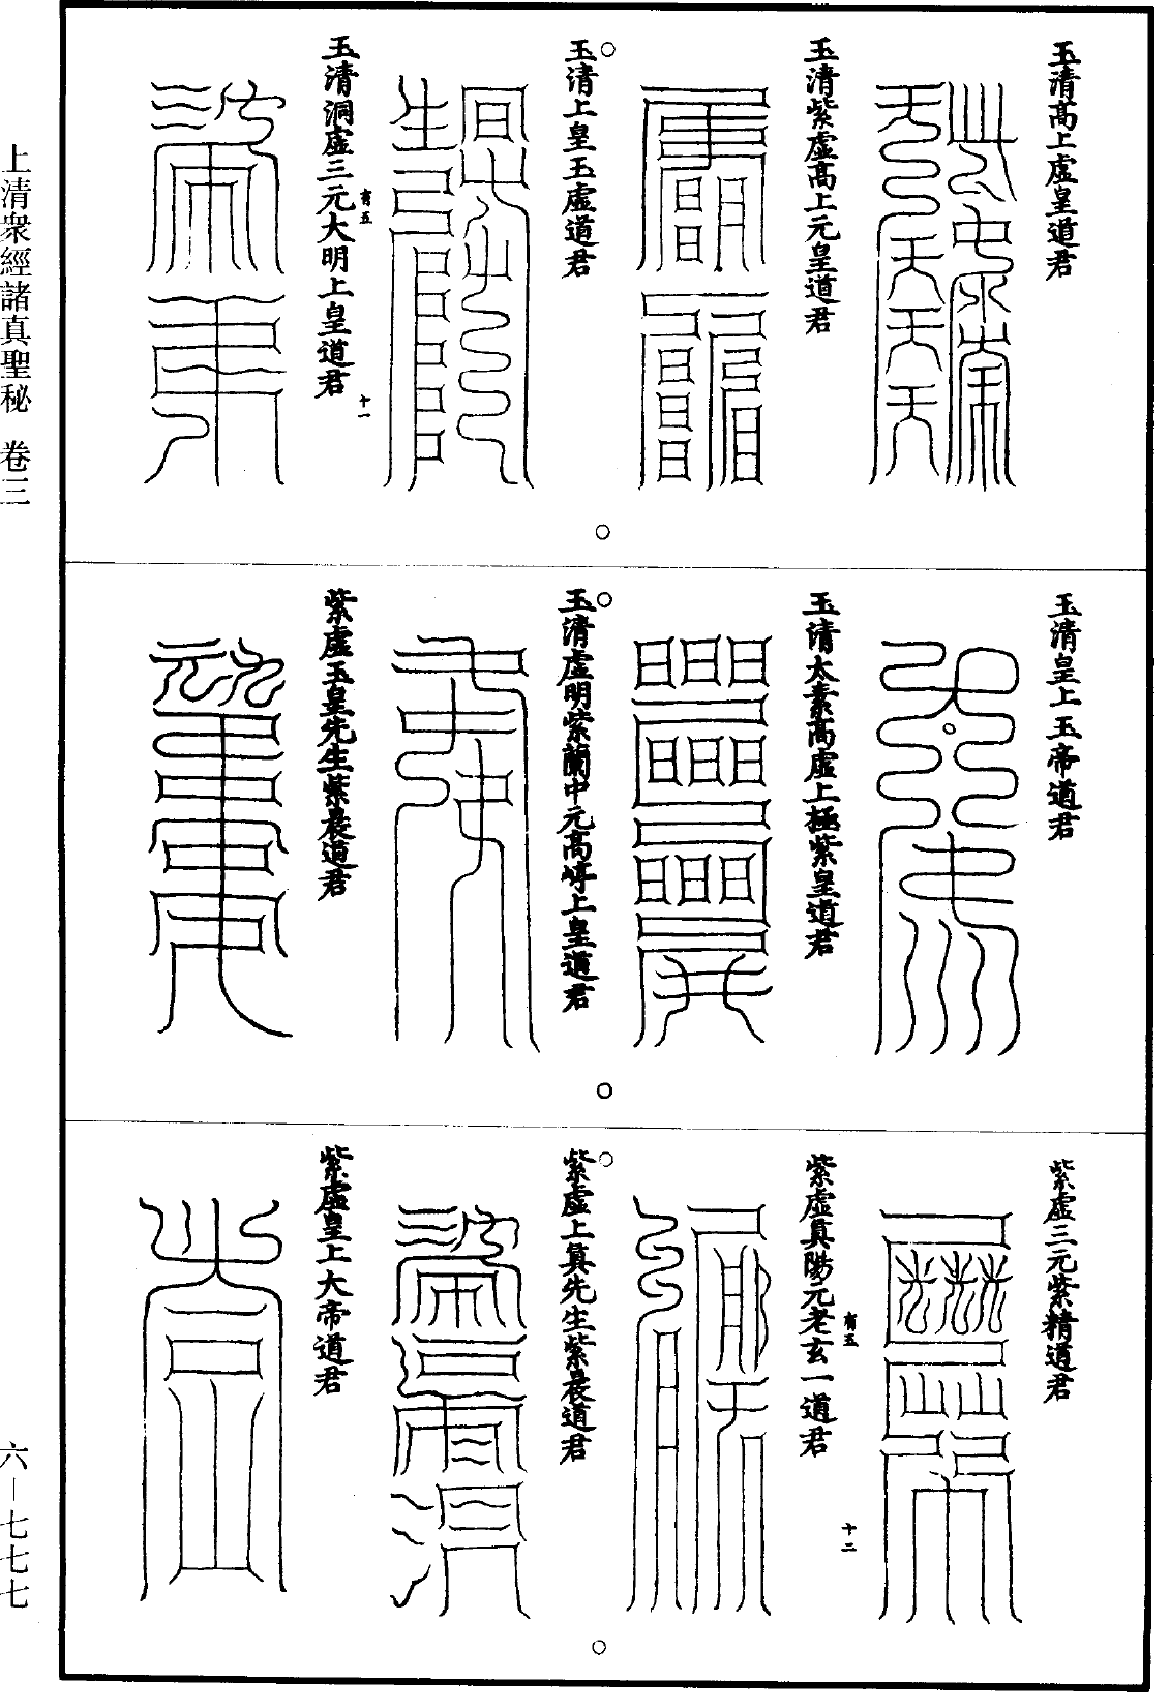 玉清高上虛皇道君
玉清紫虛高上元皇道君
玉清上皇玉虛道君
玉清洞虛三元大明上皇道君
有五
十一
玉清皇上玉帝道君
玉清太素高虛上極紫皇道君
玉清虛明紫蘭中元高㟁上皇道君
紫虛玉皇先生紫晨道君
紫虛三元紫精道君
紫虛真陽元老玄一道君
有五
十二
紫虛上真先生紫晨道君
紫虛皇上大帝道君
上清眾經諸真聖秘 卷三
六—七七七